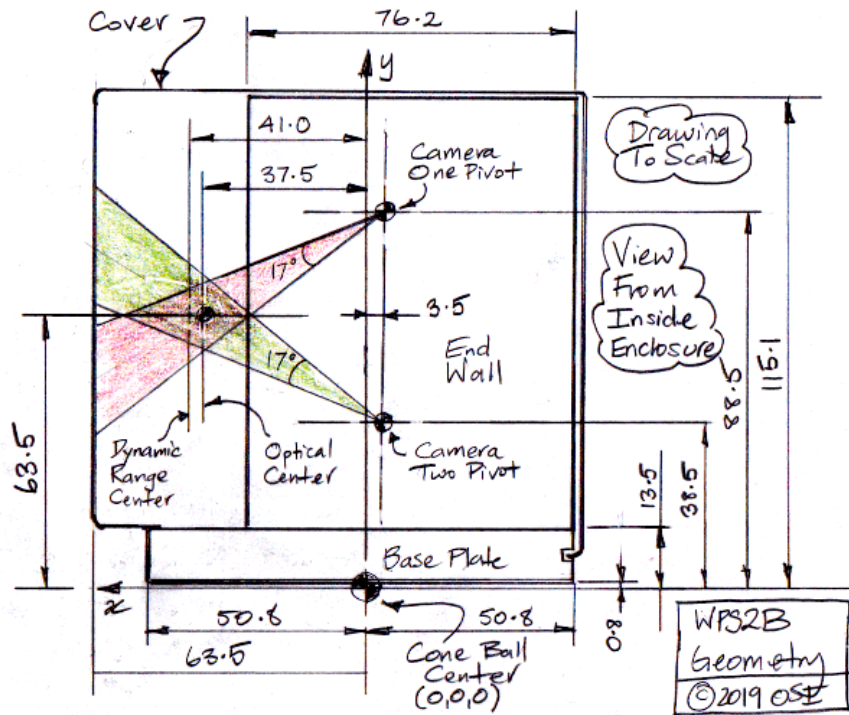 Cover
76.2
y
41.0
37.5
Camera
One Pivot
Drawing
To Scale
17°
View
From
Inside
Enclosure
3.5
End
Wall
17°
115.1
88.5
63.5
Dynamic
Range
Center
Optical
Center
Camera
Two Pivot
13.5
38.5
Base Plate
x
50.8
50.8
0.8
63.5
Cone Ball
Center
(0,0,0)
WPS2B
Geometry
©2019 OSE